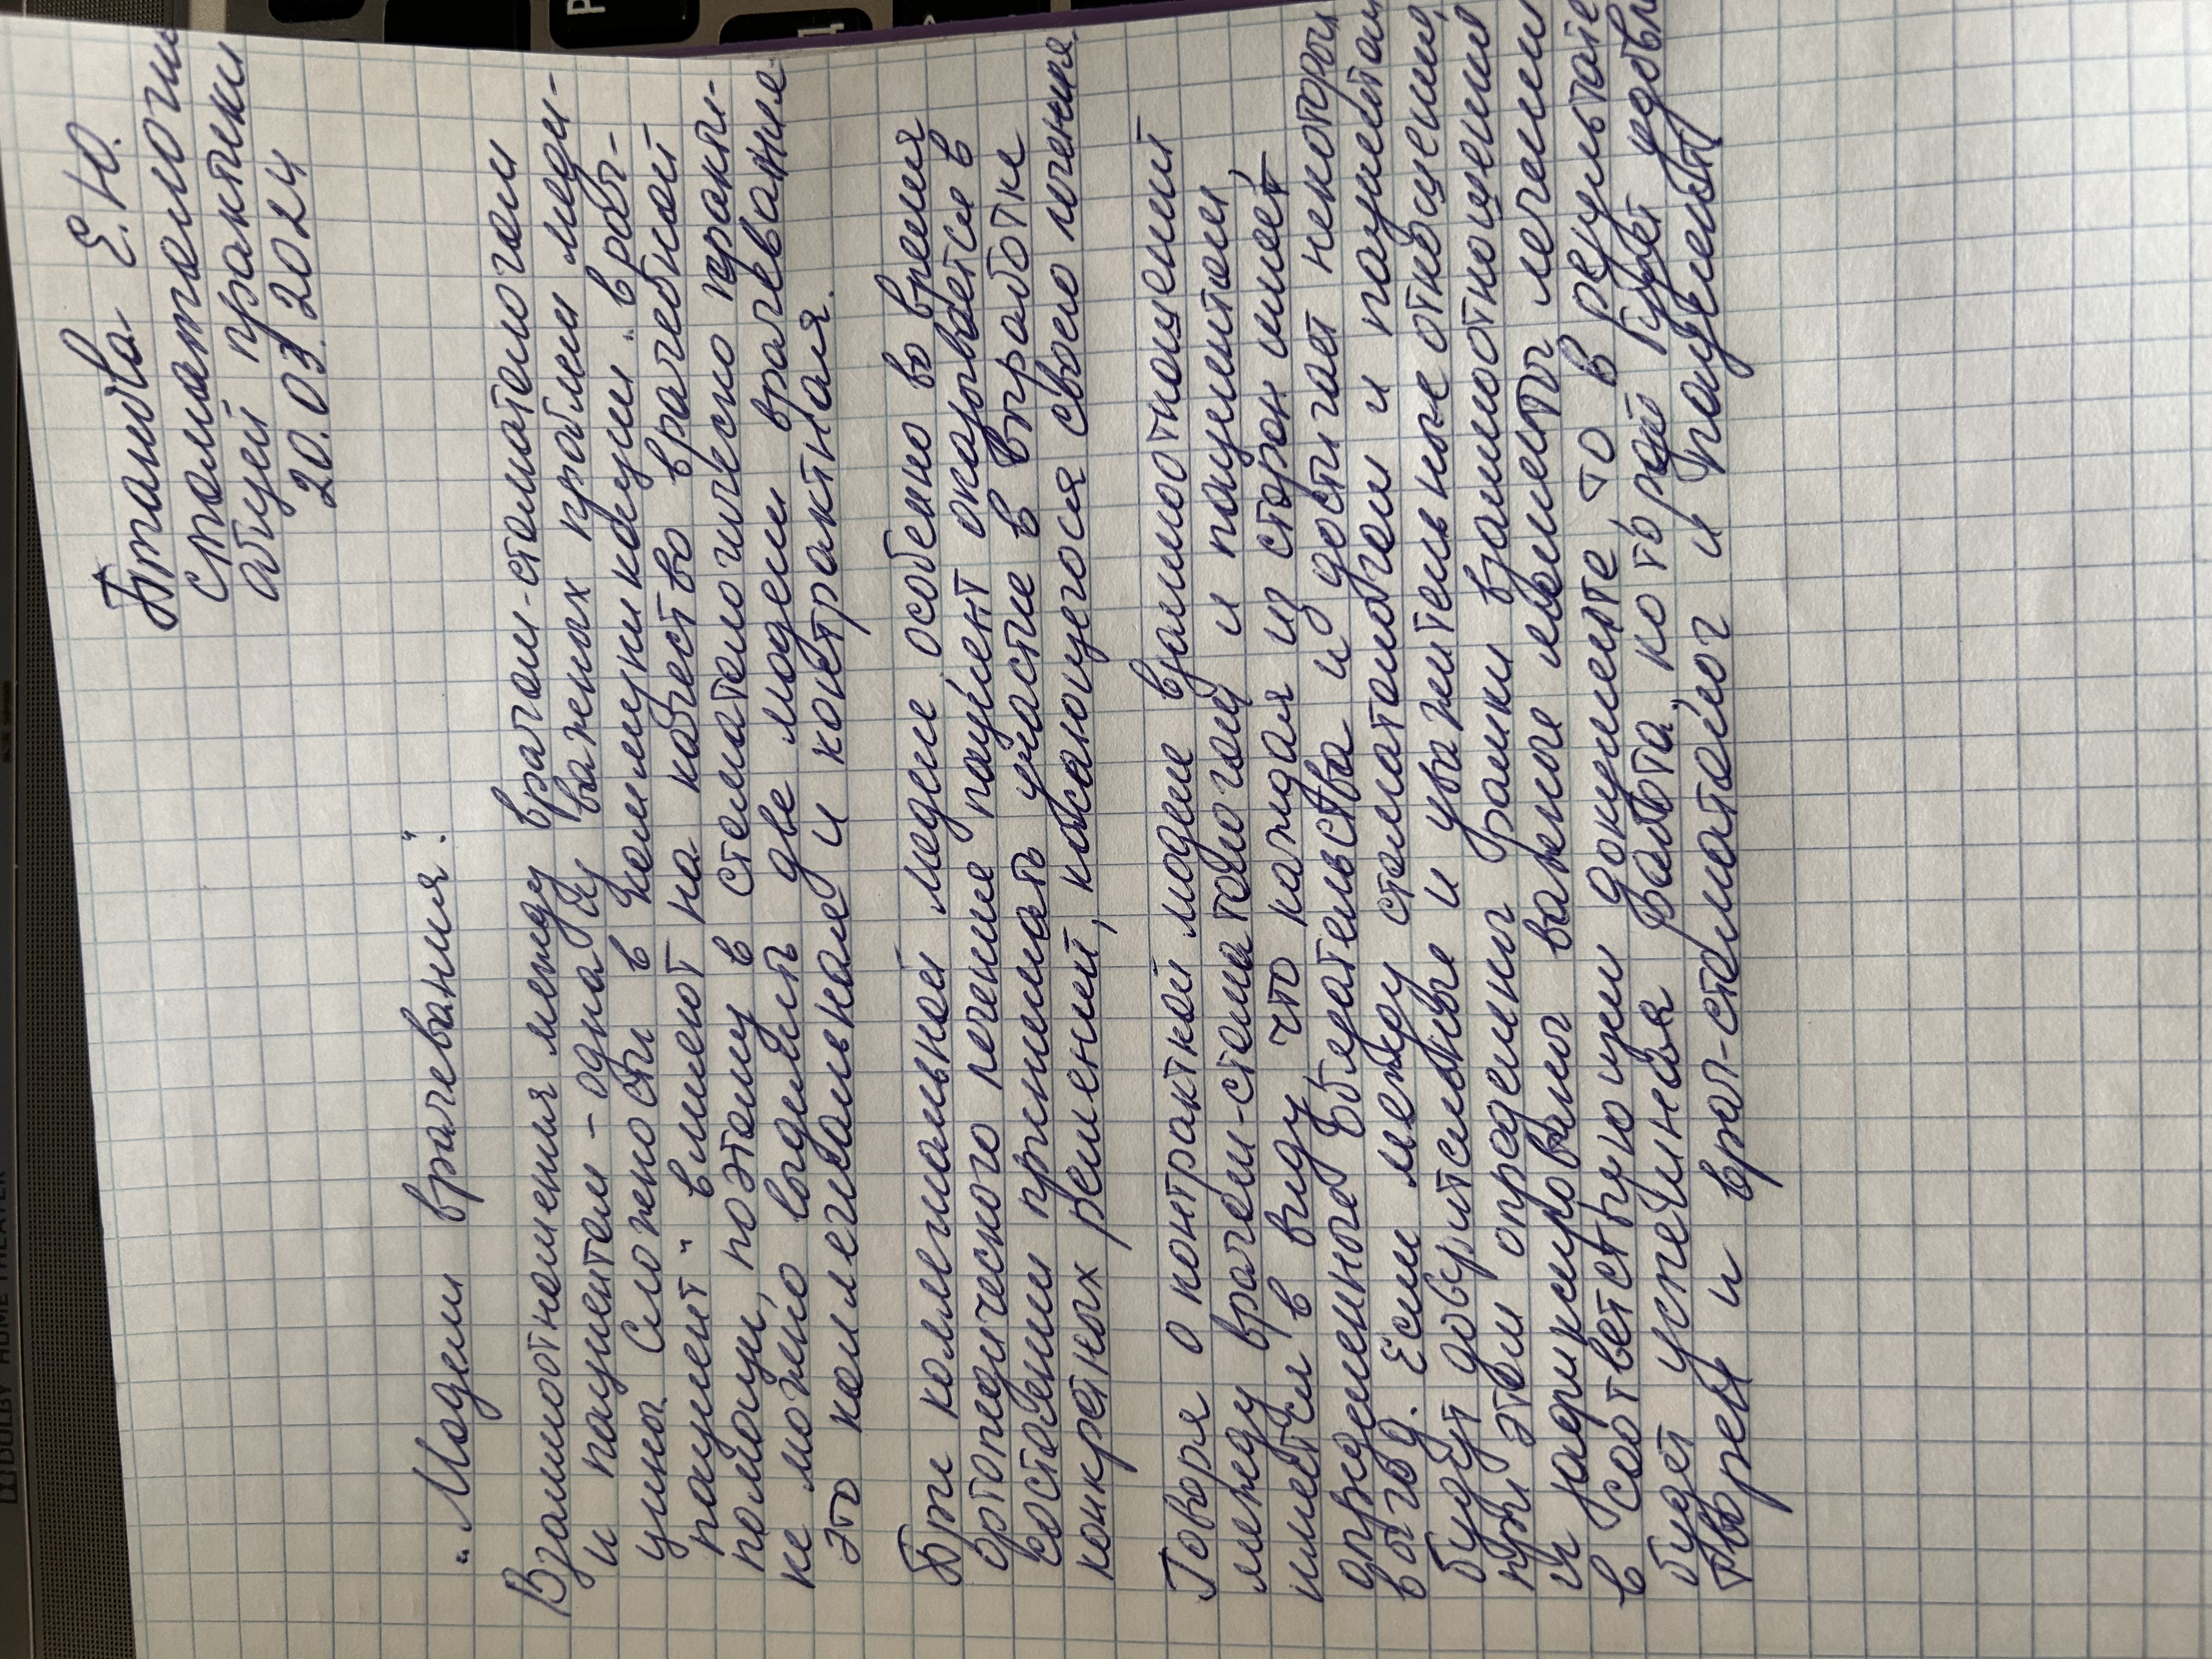 Е.Ю.
стоматологии
общей практики
20.03.2024
"Модели врачевания".
Взаимоотношения между врачом-стоматологом
и пациентом - одна из важных проблем меди-
цины. Сложности в коммуникации "врач-
пациент" влияют на качество врачебной
помощи, поэтому в стоматологической практи-
ке можно выделить две модели врачевания-
это коллегиальная и контрактная.
При коллегиальной модели, особенно во время
ортопедического лечения пациент оказывается в
состоянии принимать участие в выработке
конкретных решений, касающегося своего лечения.
Говоря о контрактной модели взаимоотношений
между врачом-стоматологом и пациентом,
имеется в виду, что каждая из сторон имеет
определенные обязательства и достигает некоторой
выгоды. Если между стоматологом и пациентом
будут доверительные и уважительные отношения,
при этом определены рамки взаимоотношений
и зафиксированы важные моменты лечения
в соответствующем документе, то в результате
будет успешная работа, которой будет удовле-
творен и врач-стоматолог и пациент!
DOLBY HOME THEATER